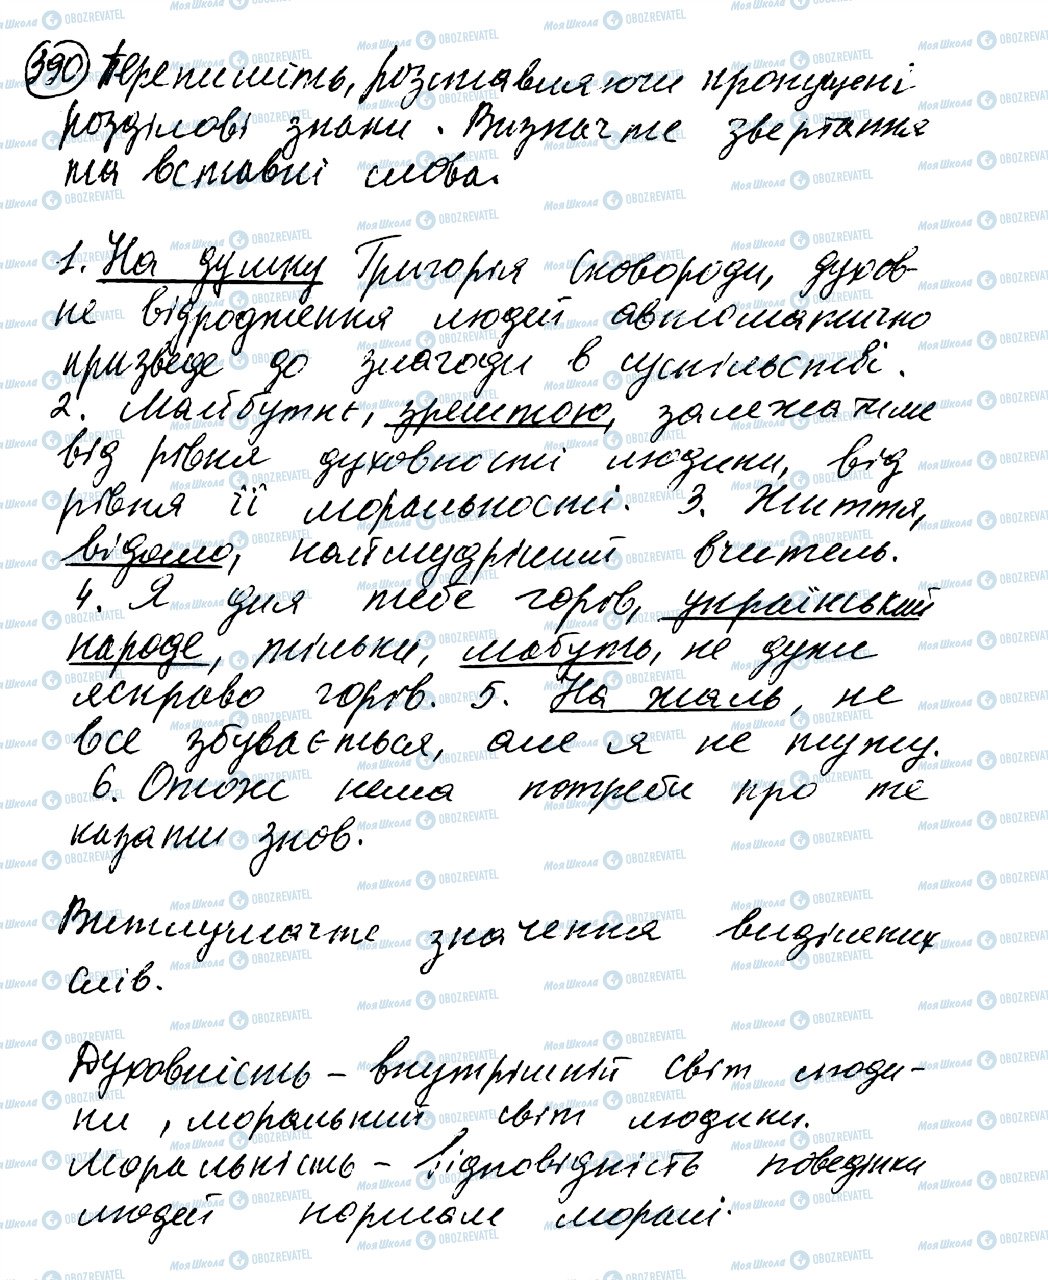 390 Перепишіть, розставляючи пропущені
розділові знаки. Визначте звертання
та вставні слова.
1. На думку Григорія Сковороди, духов-
не відродження людей автоматично
призведе до злагоди в суспільстві.
2. Майбутнє, зрештою, залежатиме
від рівня духовності людини, від
рівня її моральності. 3. Життя,
відомо, наймудріший вчитель.
4. Я для тебе горів, український
народе, тільки, мабуть, не дуже
яскраво горів. 5. На жаль, не
все збувається, але я не тужу.
6. Отож нема потреби про те
казати знов.
Витлумачте значення виділених
слів.
Духовність – внутрішній світ люди-
ни, моральний світ людини.
Моральність – відповідність поведінки
людей нормам моралі.